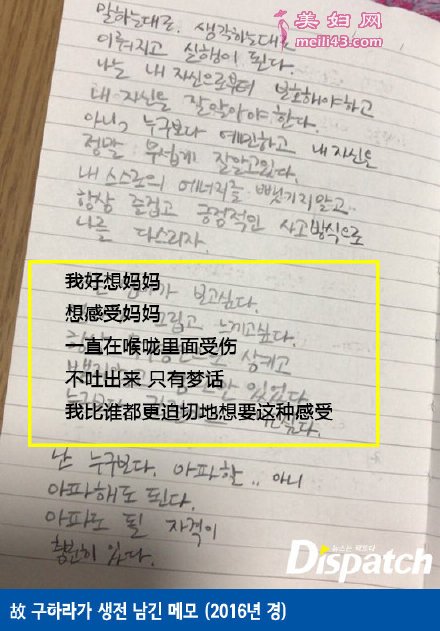 美妇网
meili43.com
말하는대로. 생각하는대로
이뤄지고 실행이 된다.
나는 내 자신으로부터 보호해야하고
내 자신을 잘 알아야 한다.
아니, 누구보다 예민하고 내 자신을
정말 무섭게 잘 알고있다.
내 스스로의 에너지를 뺏기지말고..
항상 즐겁고 긍정적인 사고방식으로
나를 다스리자.
我好想妈妈
가 보고싶다.
想感受妈妈
그립고 느끼고싶다.
一直在喉咙里面受伤
삼키고
不吐出来 只有梦话
있었다.
我比谁都更迫切地想要这种感受
난 누구보다. 아파할.. 아니
아파해도 된다.
아파도 될 자격이
충분히 있다.
뉴스는 팩트다
Dispatch
故 구하라가 생전 남긴 메모 (2016년 경)